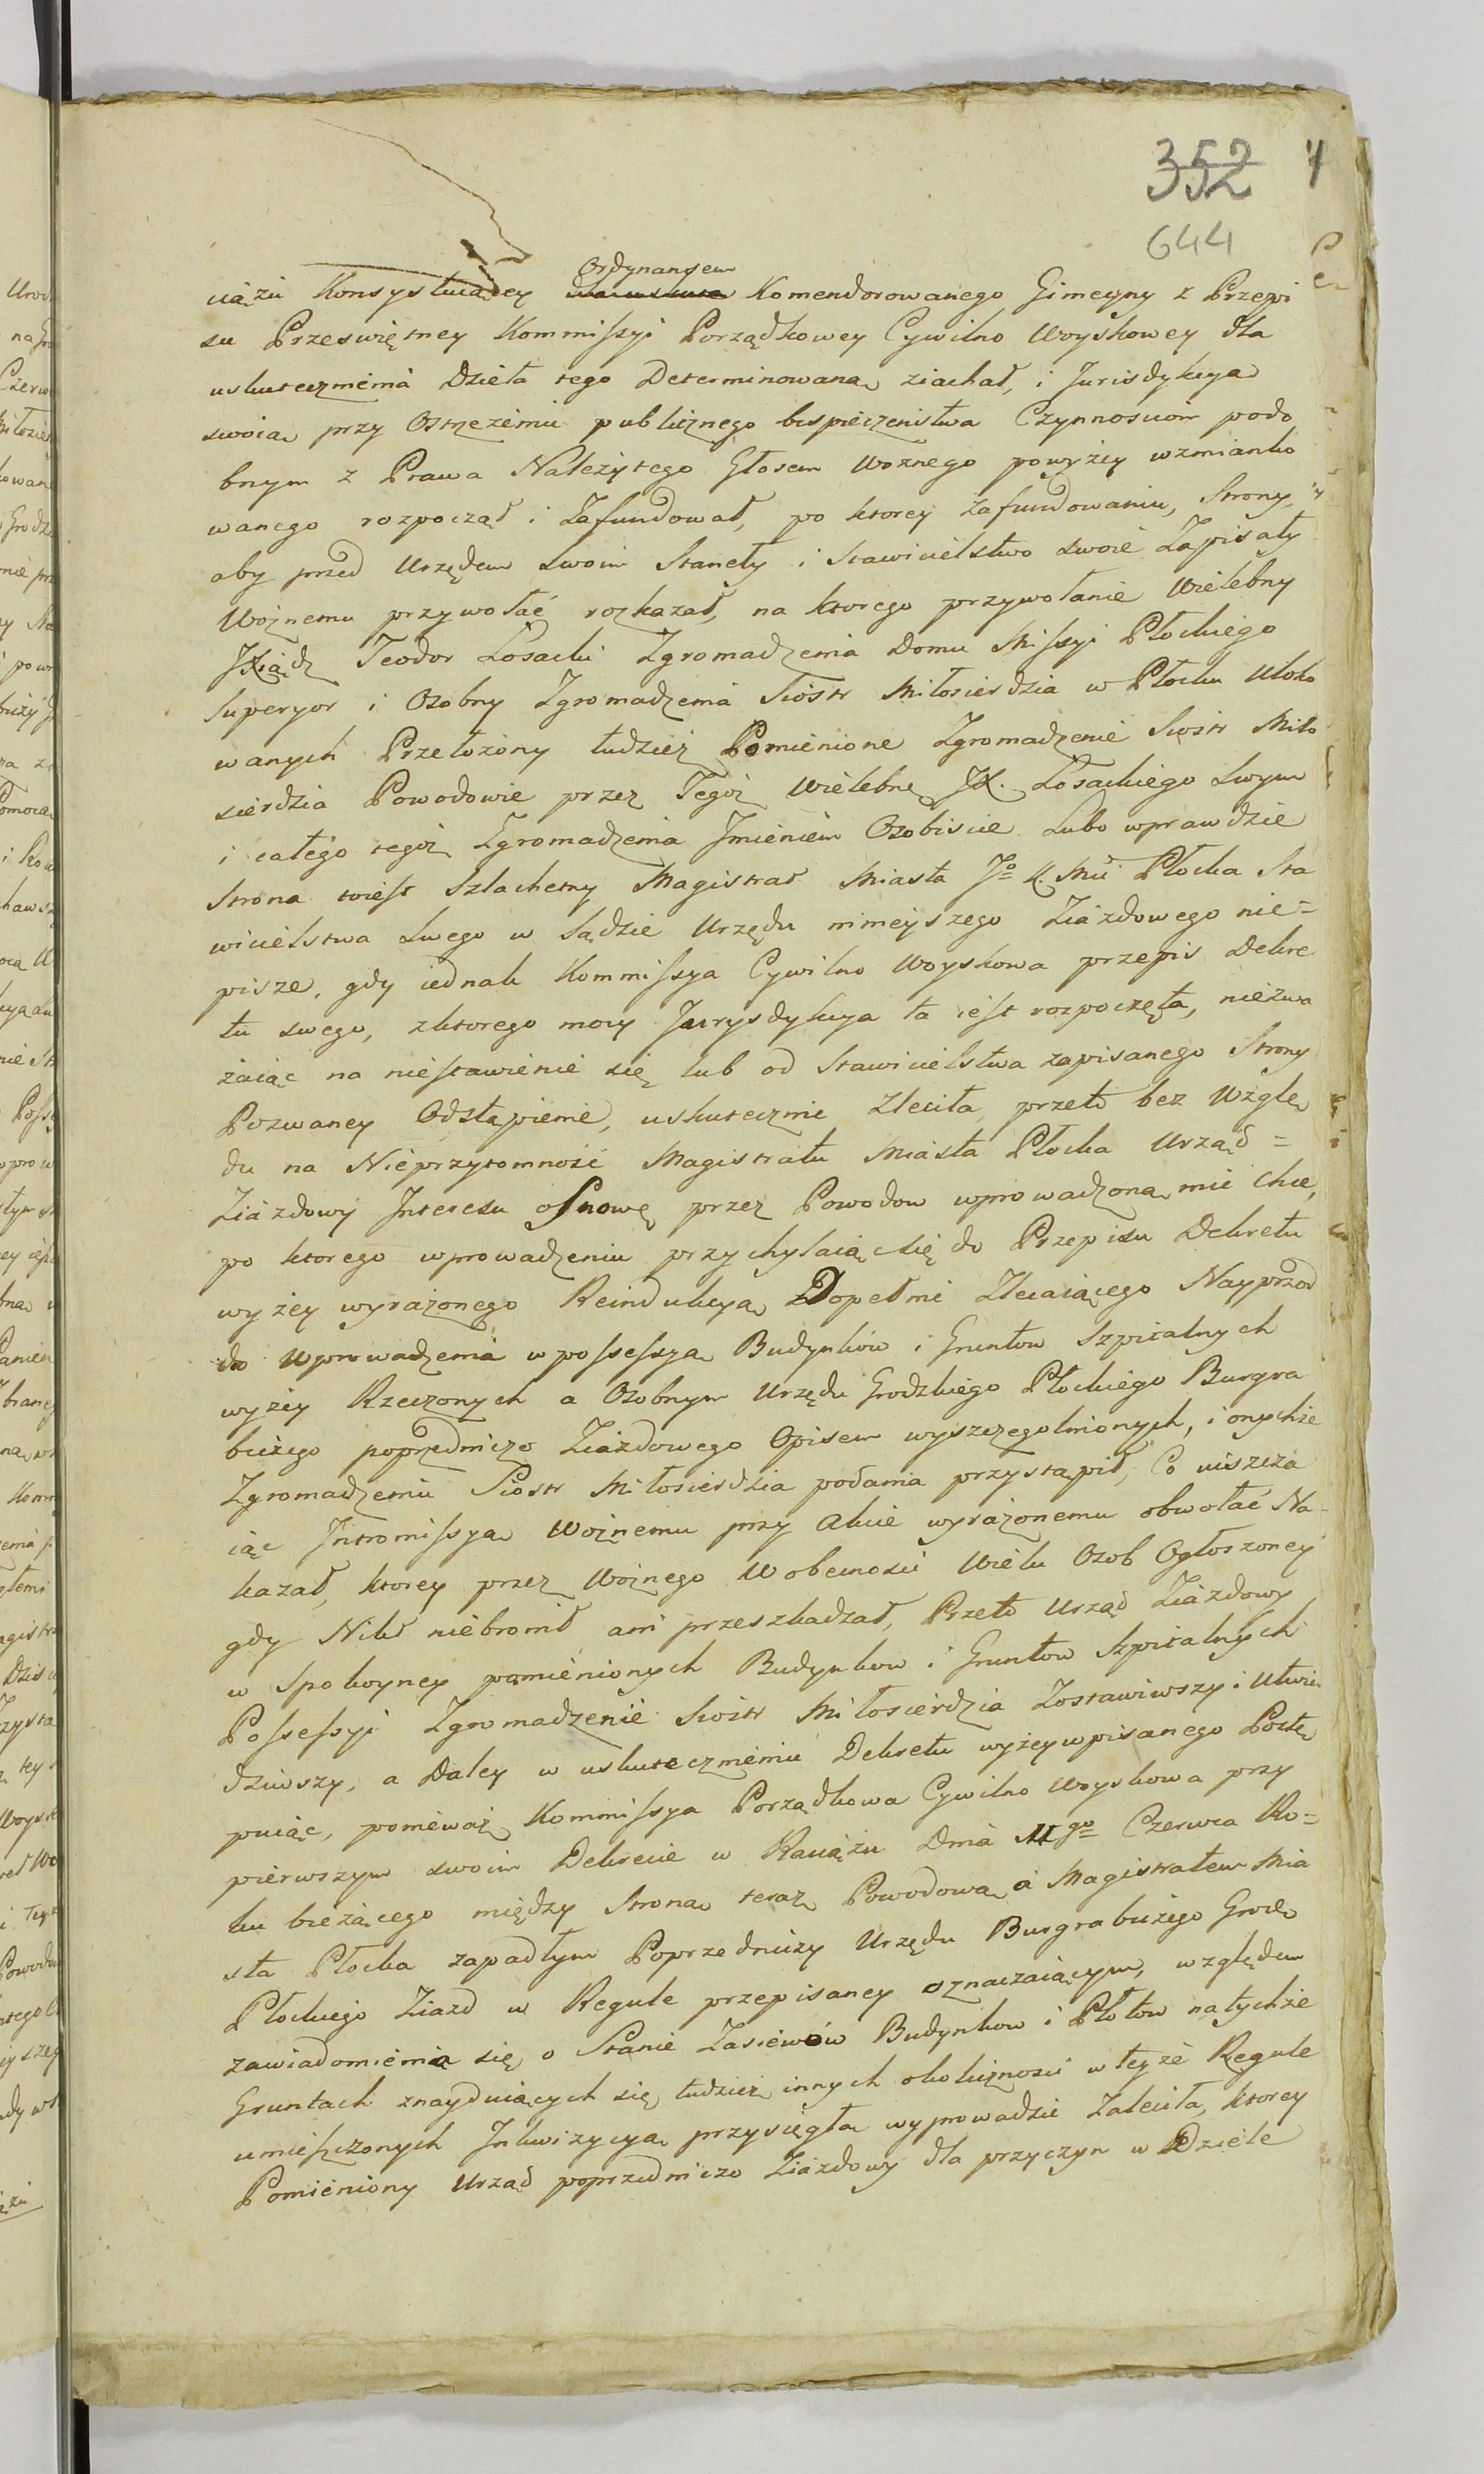 352 4
644
Ordynansem
ciążu Konsystuiącey Komenderowanego Gimeyny z Przepi
su Przeświętney Kommissyi Porządkowey Cywilno Woyskowey dla
uskutecznienia Dzieła tego Determinowaną ziachał, i Jurisdykcya
swoią przy Ostrzeżeniu publicznego bespieczeństwa Czynnościom podo
bnym z Prawa Należytego Głosem Woznego powyżey wzmianko
wanego rozpoczął i Zafundował, po ktorey zafundowaniu, Strony,
aby przed Urzędem Swoim Staneły i Stawicielstwo swoie Zapisały
Woźnemu przywołać rozkazał, na ktorego przywołanie Wielebny
JXiądz Teodor Łosacki Zgromadzenia Domu Missyi Płockiego
Superyor i Osobny Zgromadzenia Siostr Miłosierdzia w Płocku Uloko
wanych Przełożony tudzież Pomienione Zgromadzenie Siostr Miło
sierdzia Powodowie przez Tegoż Wielebne JX. Łosackiego Swym
i całego tegoż Zgromadzenia Jmieniem Osobiscie Lubo wprawdzie
Strona to iest Szlachetny Magistrat Miasta Jo K. Mci Płocka Sta
wicielstwa Swego w Sądzie Urzędu ninieyszego Ziazdowego nie=
pisze, gdy iednak Kommissya Cywilno Woyskowa przepis Dekre
tu swego, z ktorego mocy Jurysdykcya ta iest rozpoczęta, niezwa
żaiąc na niestawienie się lub od Stawicielstwa zapisanego Strony
Pozwaney Odstąpienie, uskutecznić Zleciła, przeto bez Wzglę
du na Nieprzytomność Magistratu Miasta Płocka Urząd=
Ziazdowy Jnteressu osnowę przez Powodow wprowadzoną mieć chce,
po ktorego wprowadzeniu przychylaiąc się do Przepisu Dekretu
wyżey wyrażonego Reindukcyą Dopełnić Zlecaiącego Nayprzod
do Wprowadzenia w possessyą Budynkow i Gruntow Szpitalnych
wyżey Rzeczonych a Osobnym Urzędu Grodzkiego Płockiego Burgra
biego poprzedniczo Ziazdowego Opisem wyszczegolnionych, i onychże
Zgromadzeniu Siostr Miłosierdzia podania przystąpił, Co uiszcza
iąc Jntromissyą Woźnemu przy Akcie wyrażonemu obwołać Na-
kazał, ktorey przez Woźnego W obecności Wielu Osob Ogłoszoney
gdy Nikt niebronił ani przeszkadzał, Przeto Urząd Ziazdowy
w Spokoyney pomienionych Budynkow i Gruntow Szpitalnych
Possessyi Zgromadzenie Siostr Miłosierdzia Zostawiwszy i Utwier
dziwszy, a Daley w uskutecznieniu Dekretu wyżey wpisanego Postę
puiąc, ponieważ Kommissya Porządkowa Cywilno Woyskowa przy
pierwszym swoim Dekrecie w Raciążu Dnia 11go Czerwca Ro=
ku bieżącego między Stroną teraz Powodową a Magistratem Mia
sta Płocka zapadłym Poprzedniczy Urzędu Burgrabiego Grodz
Płockiego Ziazd w Regule przepisaney oznaczaiącym, względem
zawiadomienia się o Stanie Zasiewow Budynkow i Płotow natychże
Gruntach znayduiących się, tudzież innych okoliczności w teyże Regule
umieszczonych Jnkwizycyą przysięgłą wyprowadzić Zaleciła, ktorey
Pomieniony Urząd poprzedniczo Ziazdowy dla przyczyn w Dziele